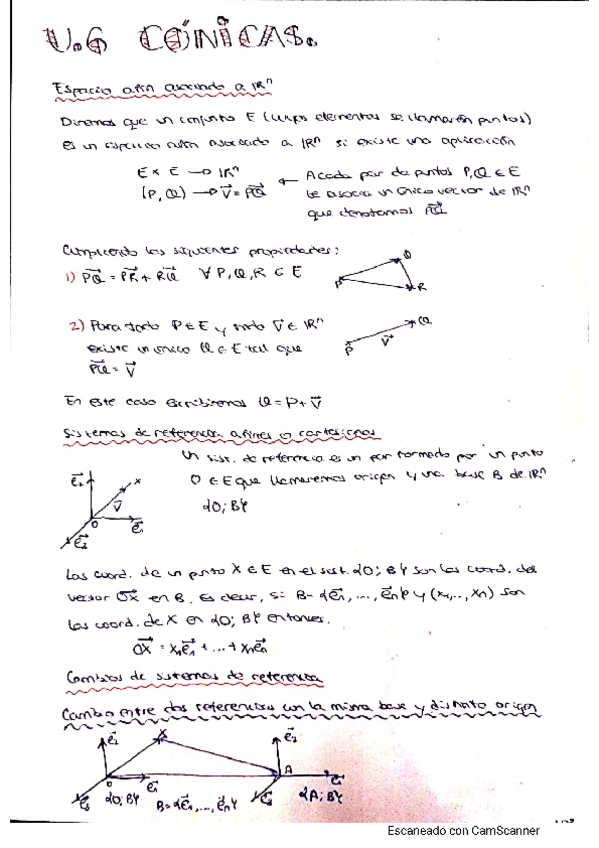 U.6 CÓNICAS.
Espacio afín asociado a IRⁿ
Diremos que un conjunto E (cuyos elementos se llamarán puntos)
es un espacio afín asociado a IRⁿ si existe una aplicación
E x E → IRⁿ
(P, Q) → V⃗ = PQ⃗
← A cada par de puntos P, Q ∈ E
le asocia un único vector de IRⁿ
que denotamos PQ⃗
Cumpliendo las siguientes propiedades:
1) PQ⃗ = PR⃗ + RQ⃗ ∀ P, Q, R ∈ E
P Q R
2) Para todo P ∈ E y todo V⃗ ∈ IRⁿ
existe un único Q ∈ E tal que
PQ⃗ = V⃗
P V⃗ Q
En este caso escribiremos Q = P + V⃗
Sistemas de referencia afines o cartesianos
Un sist. de referencia es un par formado por un punto
O ∈ E que llamaremos origen y una base B de IRⁿ
{O; B}
e⃗₂ x V⃗ O e⃗₁ e⃗₃
Las coord. de un punto X ∈ E en el sist. {O; B} son las coord. del
vector OX⃗ en B. Es decir, si B = {e⃗₁, ..., e⃗n} y (x₁, ..., xn) son
las coord. de X en {O; B} entonces.
OX⃗ = x₁e⃗₁ + ... + xne⃗n
Cambios de sistemas de referencia
Cambio entre dos referencias con la misma base y distinto origen
e⃗₂ X e⃗₂
O e⃗₁ A e⃗₁
e⃗₃ {O; B} B = {e⃗₁, ..., e⃗n} e⃗₃ {A; B}
Escaneado con CamScanner